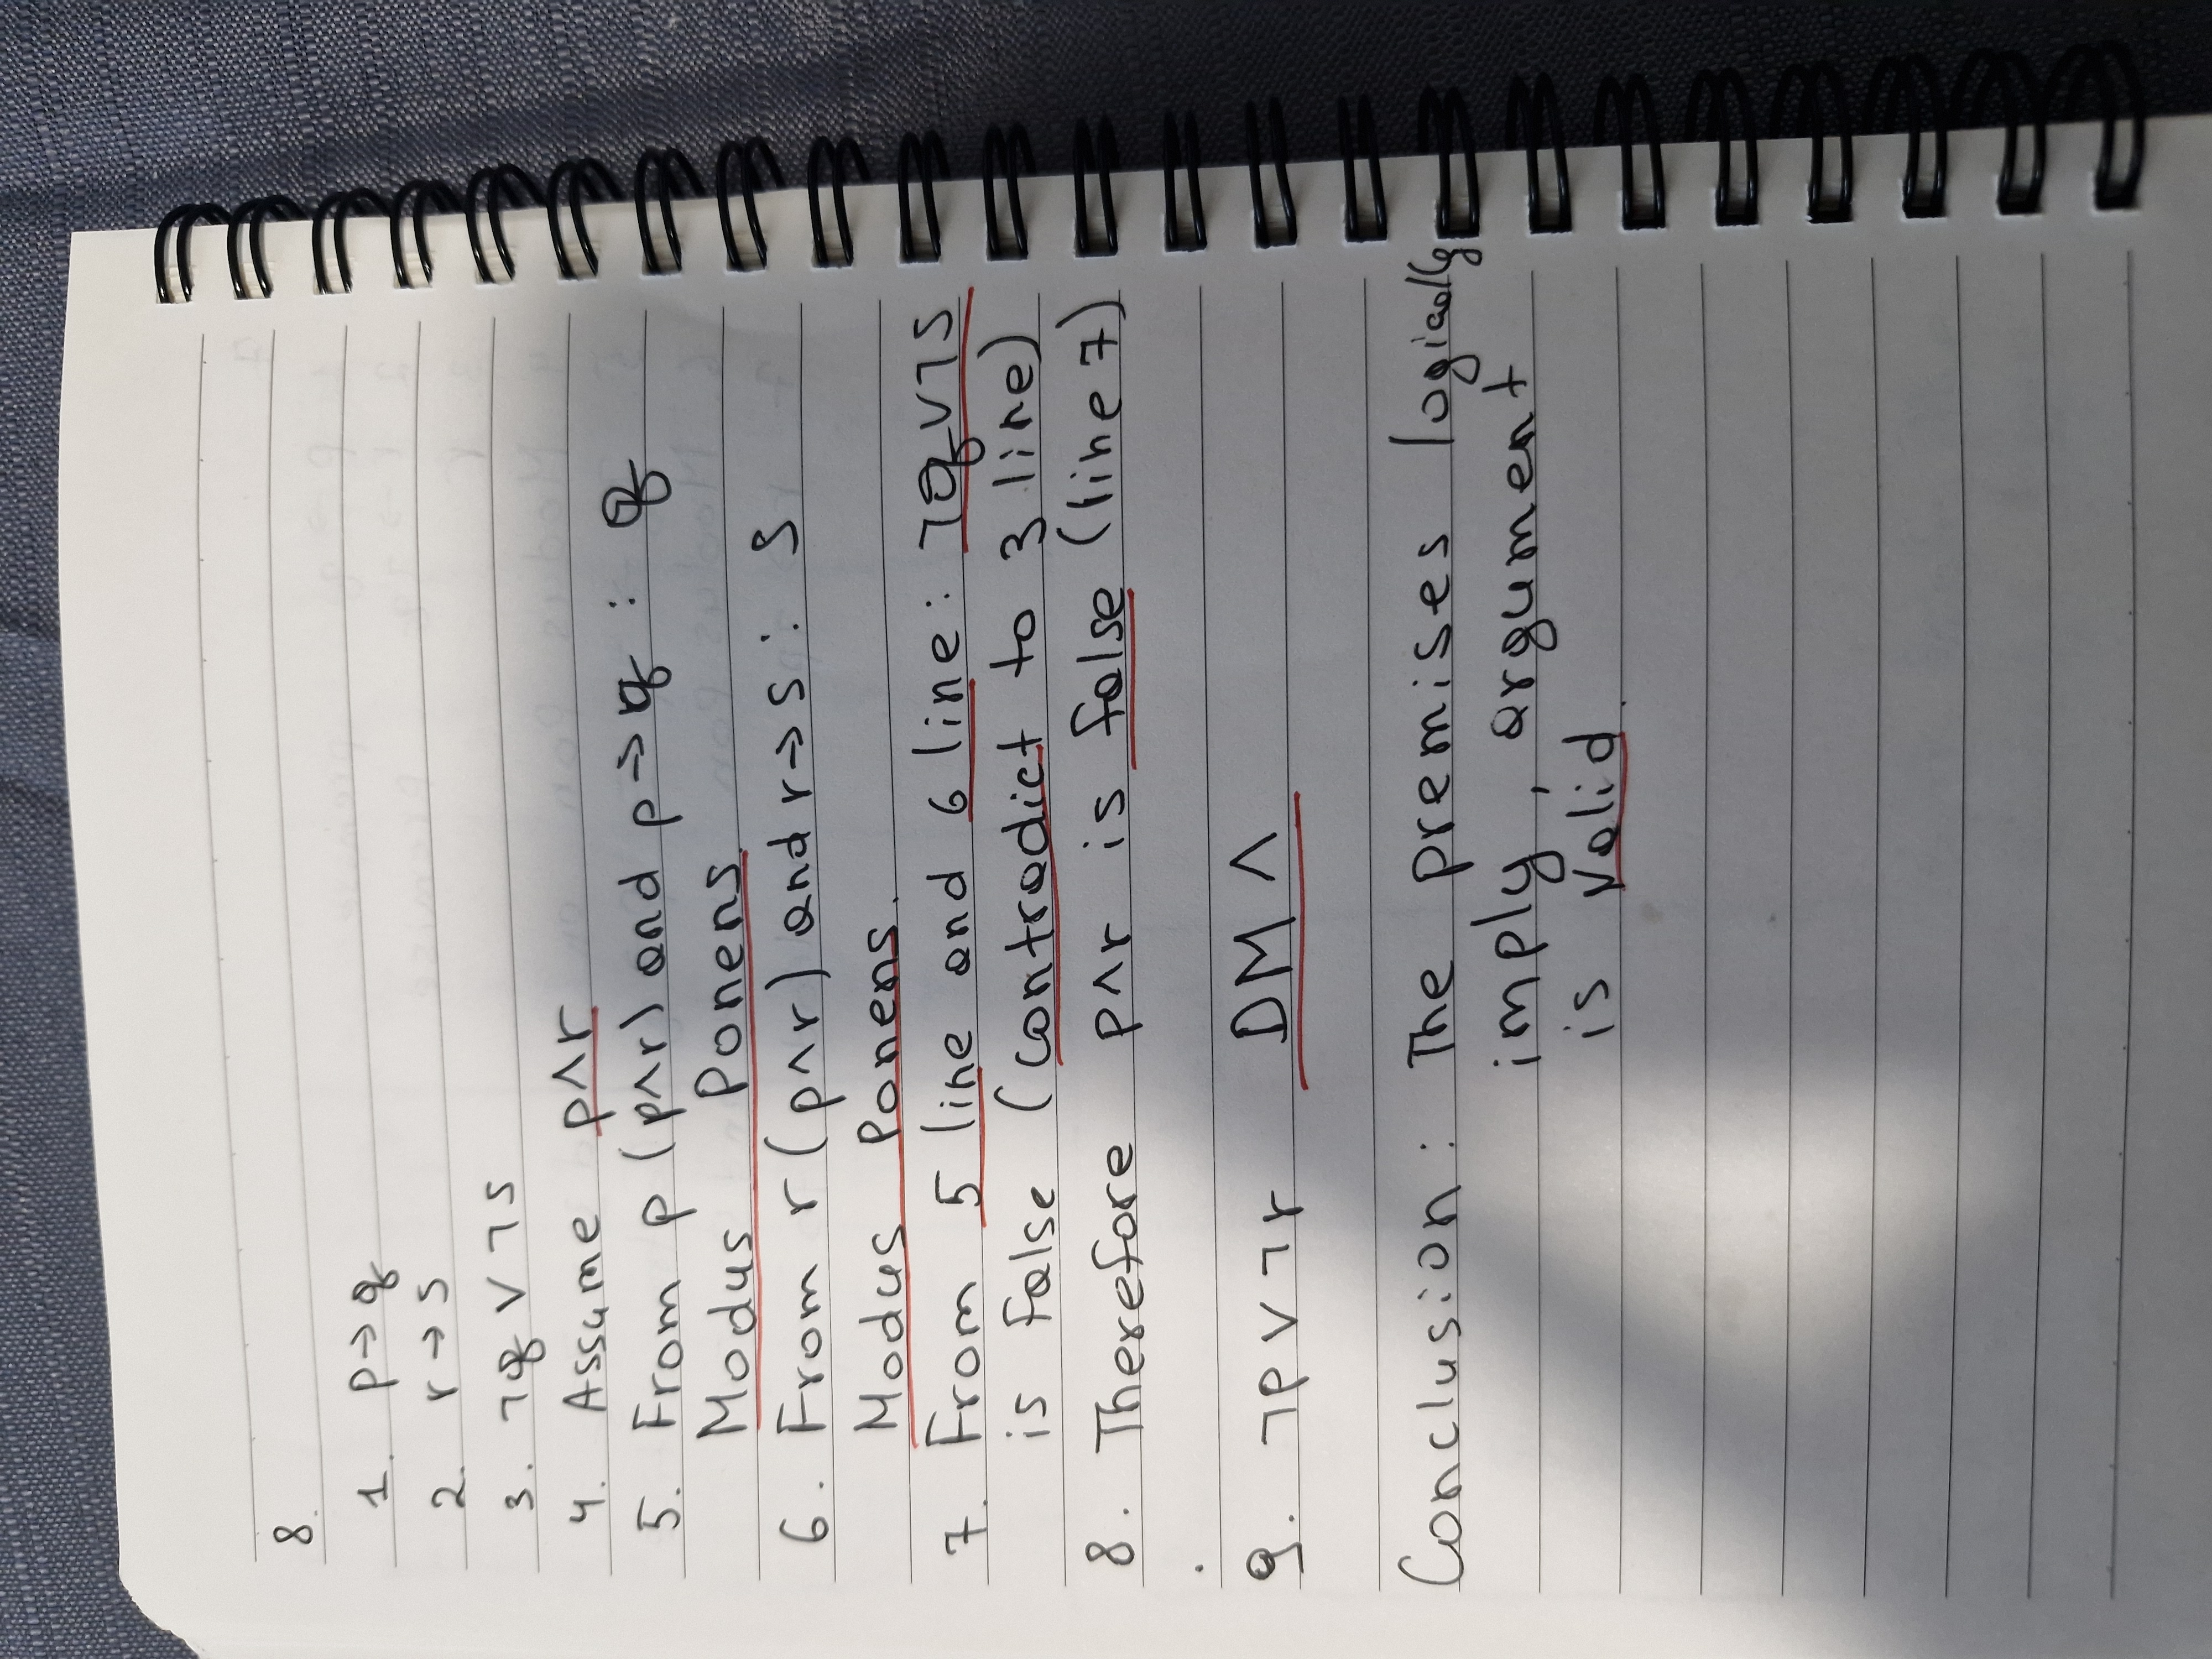 8.
1. p→q
2. r→s
3. ¬q∨¬s
4. Assume p∧r
5. From p (p∧r) and p→q : q
Modus Ponens.
6. From r (p∧r) and r→s : s
Modus Ponens.
7. From 5 line and 6 line: ¬q∨¬s
is false (contradict to 3 line)
8. Therefore p∧r is false (line 7)
.
9. ¬p∨¬r DM ∧
Conclusion: The premises logically
imply, argument
is valid.